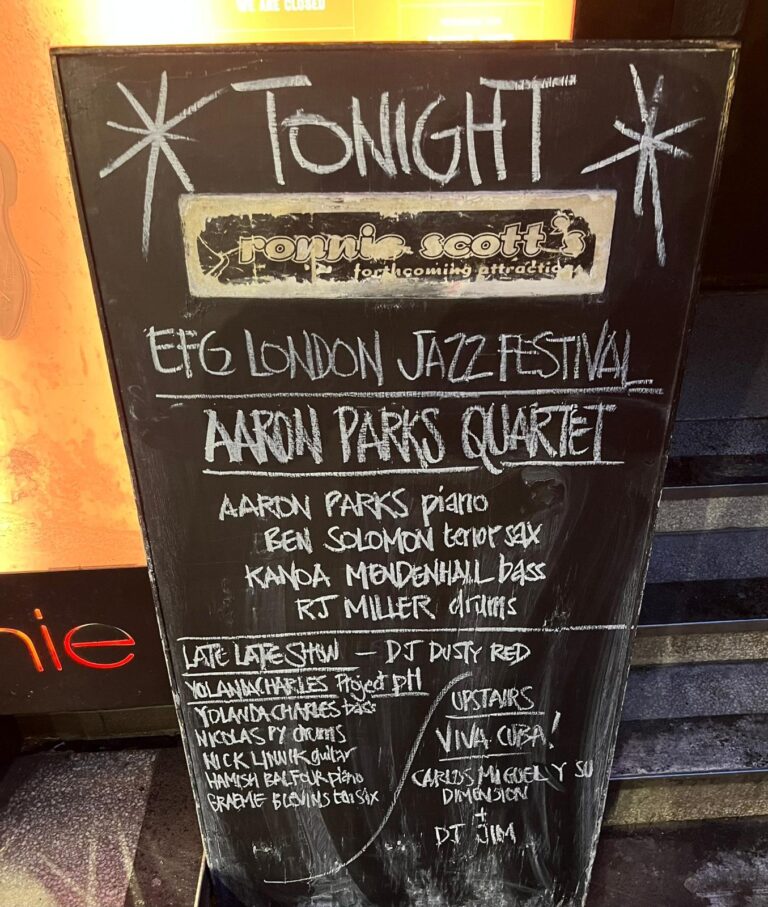 WE ARE CLOSED
TONIGHT
ronnie scott's
forthcoming attractions
EFG LONDON JAZZ FESTIVAL
AARON PARKS QUARTET
AARON PARKS piano
BEN SOLOMON tenor sax
KANOA MENDENHALL bass
RJ MILLER drums
nie
LATE LATE SHOW – DJ DUSTY RED
YOLANDA CHARLES Project pH
YOLANDA CHARLES bass
NICOLAS PY drums
NICK LINNIK guitar
HAMISH BALFOUR piano
GRAEME BLEVINS
UPSTAIRS
VIVA CUBA!
CARLOS MIGUEL Y SU
DIMENSION
+
DJ JIM